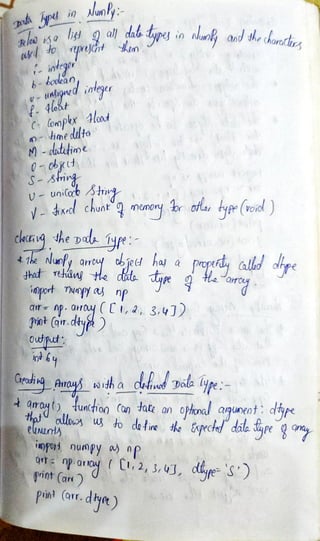 Data Types in NumPy:-
Below is a list of all data types in NumPy and the characters
used to represent them
i - integer
b - boolean
u - unsigned integer
f - float
c - complex float
m - time delta
M - datetime
O - object
S - string
U - unicode string
V - fixed chunk of memory for other type (void)
checking the Data Type:-
* The NumPy array object has a property called dtype
that returns the data type of the array.
import numpy as np
arr = np.array([1, 2, 3, 4])
print(arr.dtype)
output:
int 64
Creating Arrays with a defined Data Type:-
* array() function can take an optional argument: dtype
that allows us to define the expected data type of array
elements
import numpy as np
arr = np.array([1, 2, 3, 4], dtype='S')
print(arr)
print(arr.dtype)